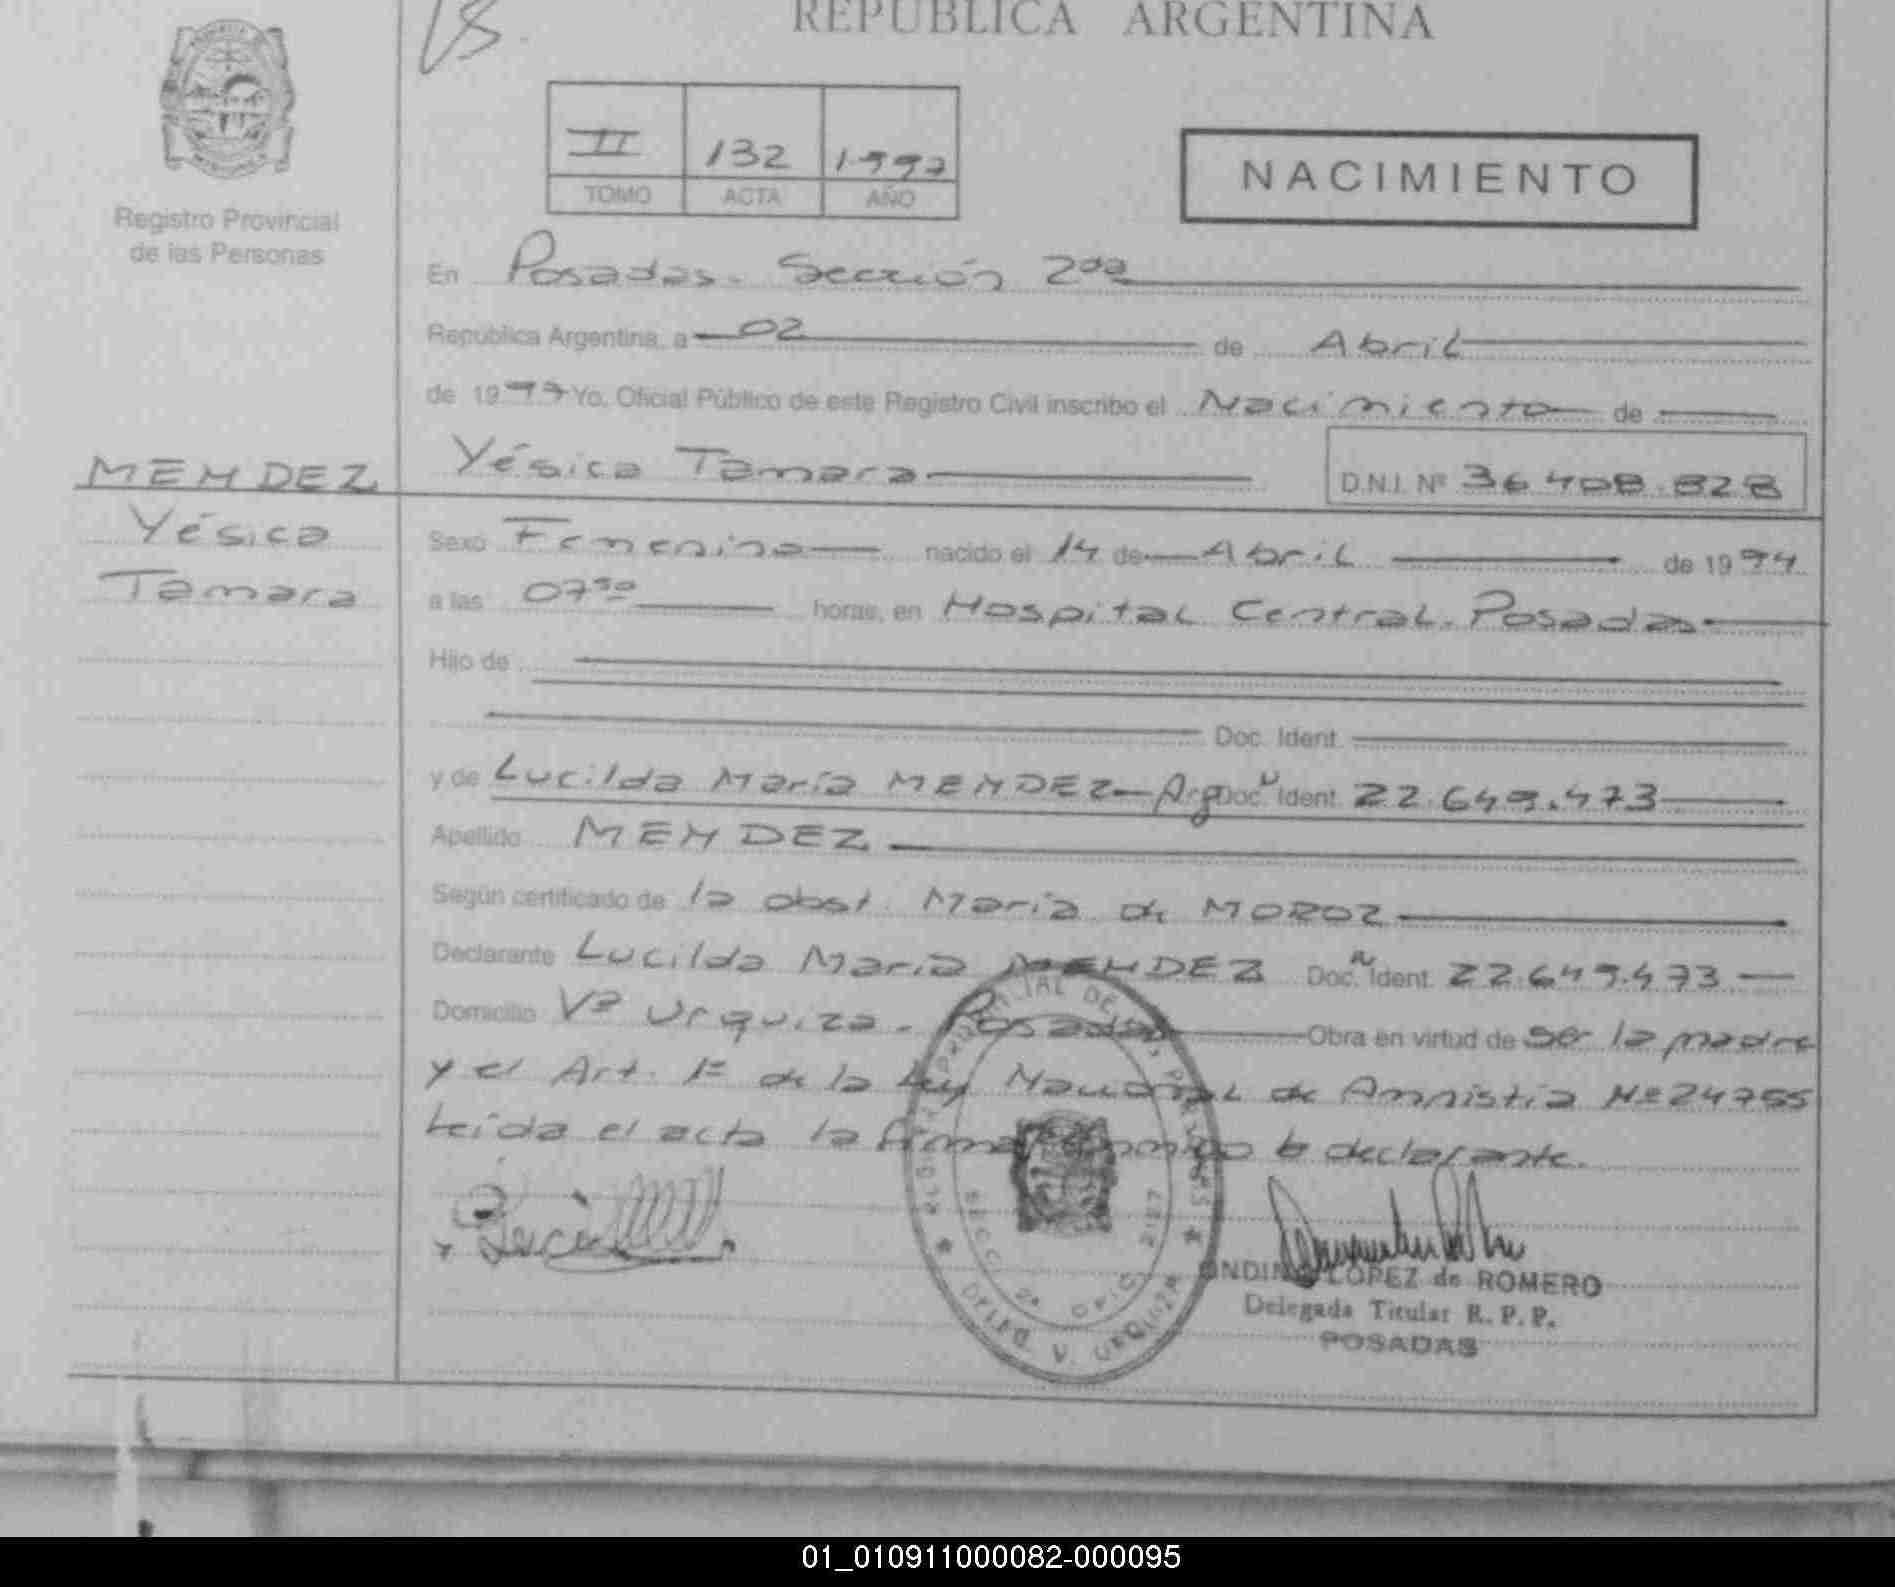 REPUBLICA ARGENTINA
II 132 1997
TOMO ACTA AÑO
NACIMIENTO
Registro Provincial
de las Personas
En Posadas. Sección 2da
Republica Argentina, a 02 de Abril
de 1997 Yo, Oficial Público de este Registro Civil inscribo el Nacimiento de
MENDEZ
Yésica
Tamara
Yésica Tamara D.N.I. Nº 36.408.828
Sexo Femenino nacido el 14 de Abril de 1994
a las 07 30 horas, en Hospital Central. Posadas
Hijo de
Doc. Ident.
y de Lucilda María MENDEZ Arg Doc. N Ident. 22.649.473
Apellido MENDEZ
Según certificado de la obst. María de MOROZ
Declarante Lucilda María MENDEZ Doc. N Ident. 22.649.473
Domicilio Vª Urquiza. Posadas Obra en virtud de ser la madre
y el Art. 1º de la Ley Nacional de Amnistia Nº 24755
Leída el acta la firma conmigo la declarante.
LOPEZ de ROMERO
Delegada Titular R.P.P.
POSADAS
DELEG. V. URQUIZA
01_010911000082-000095